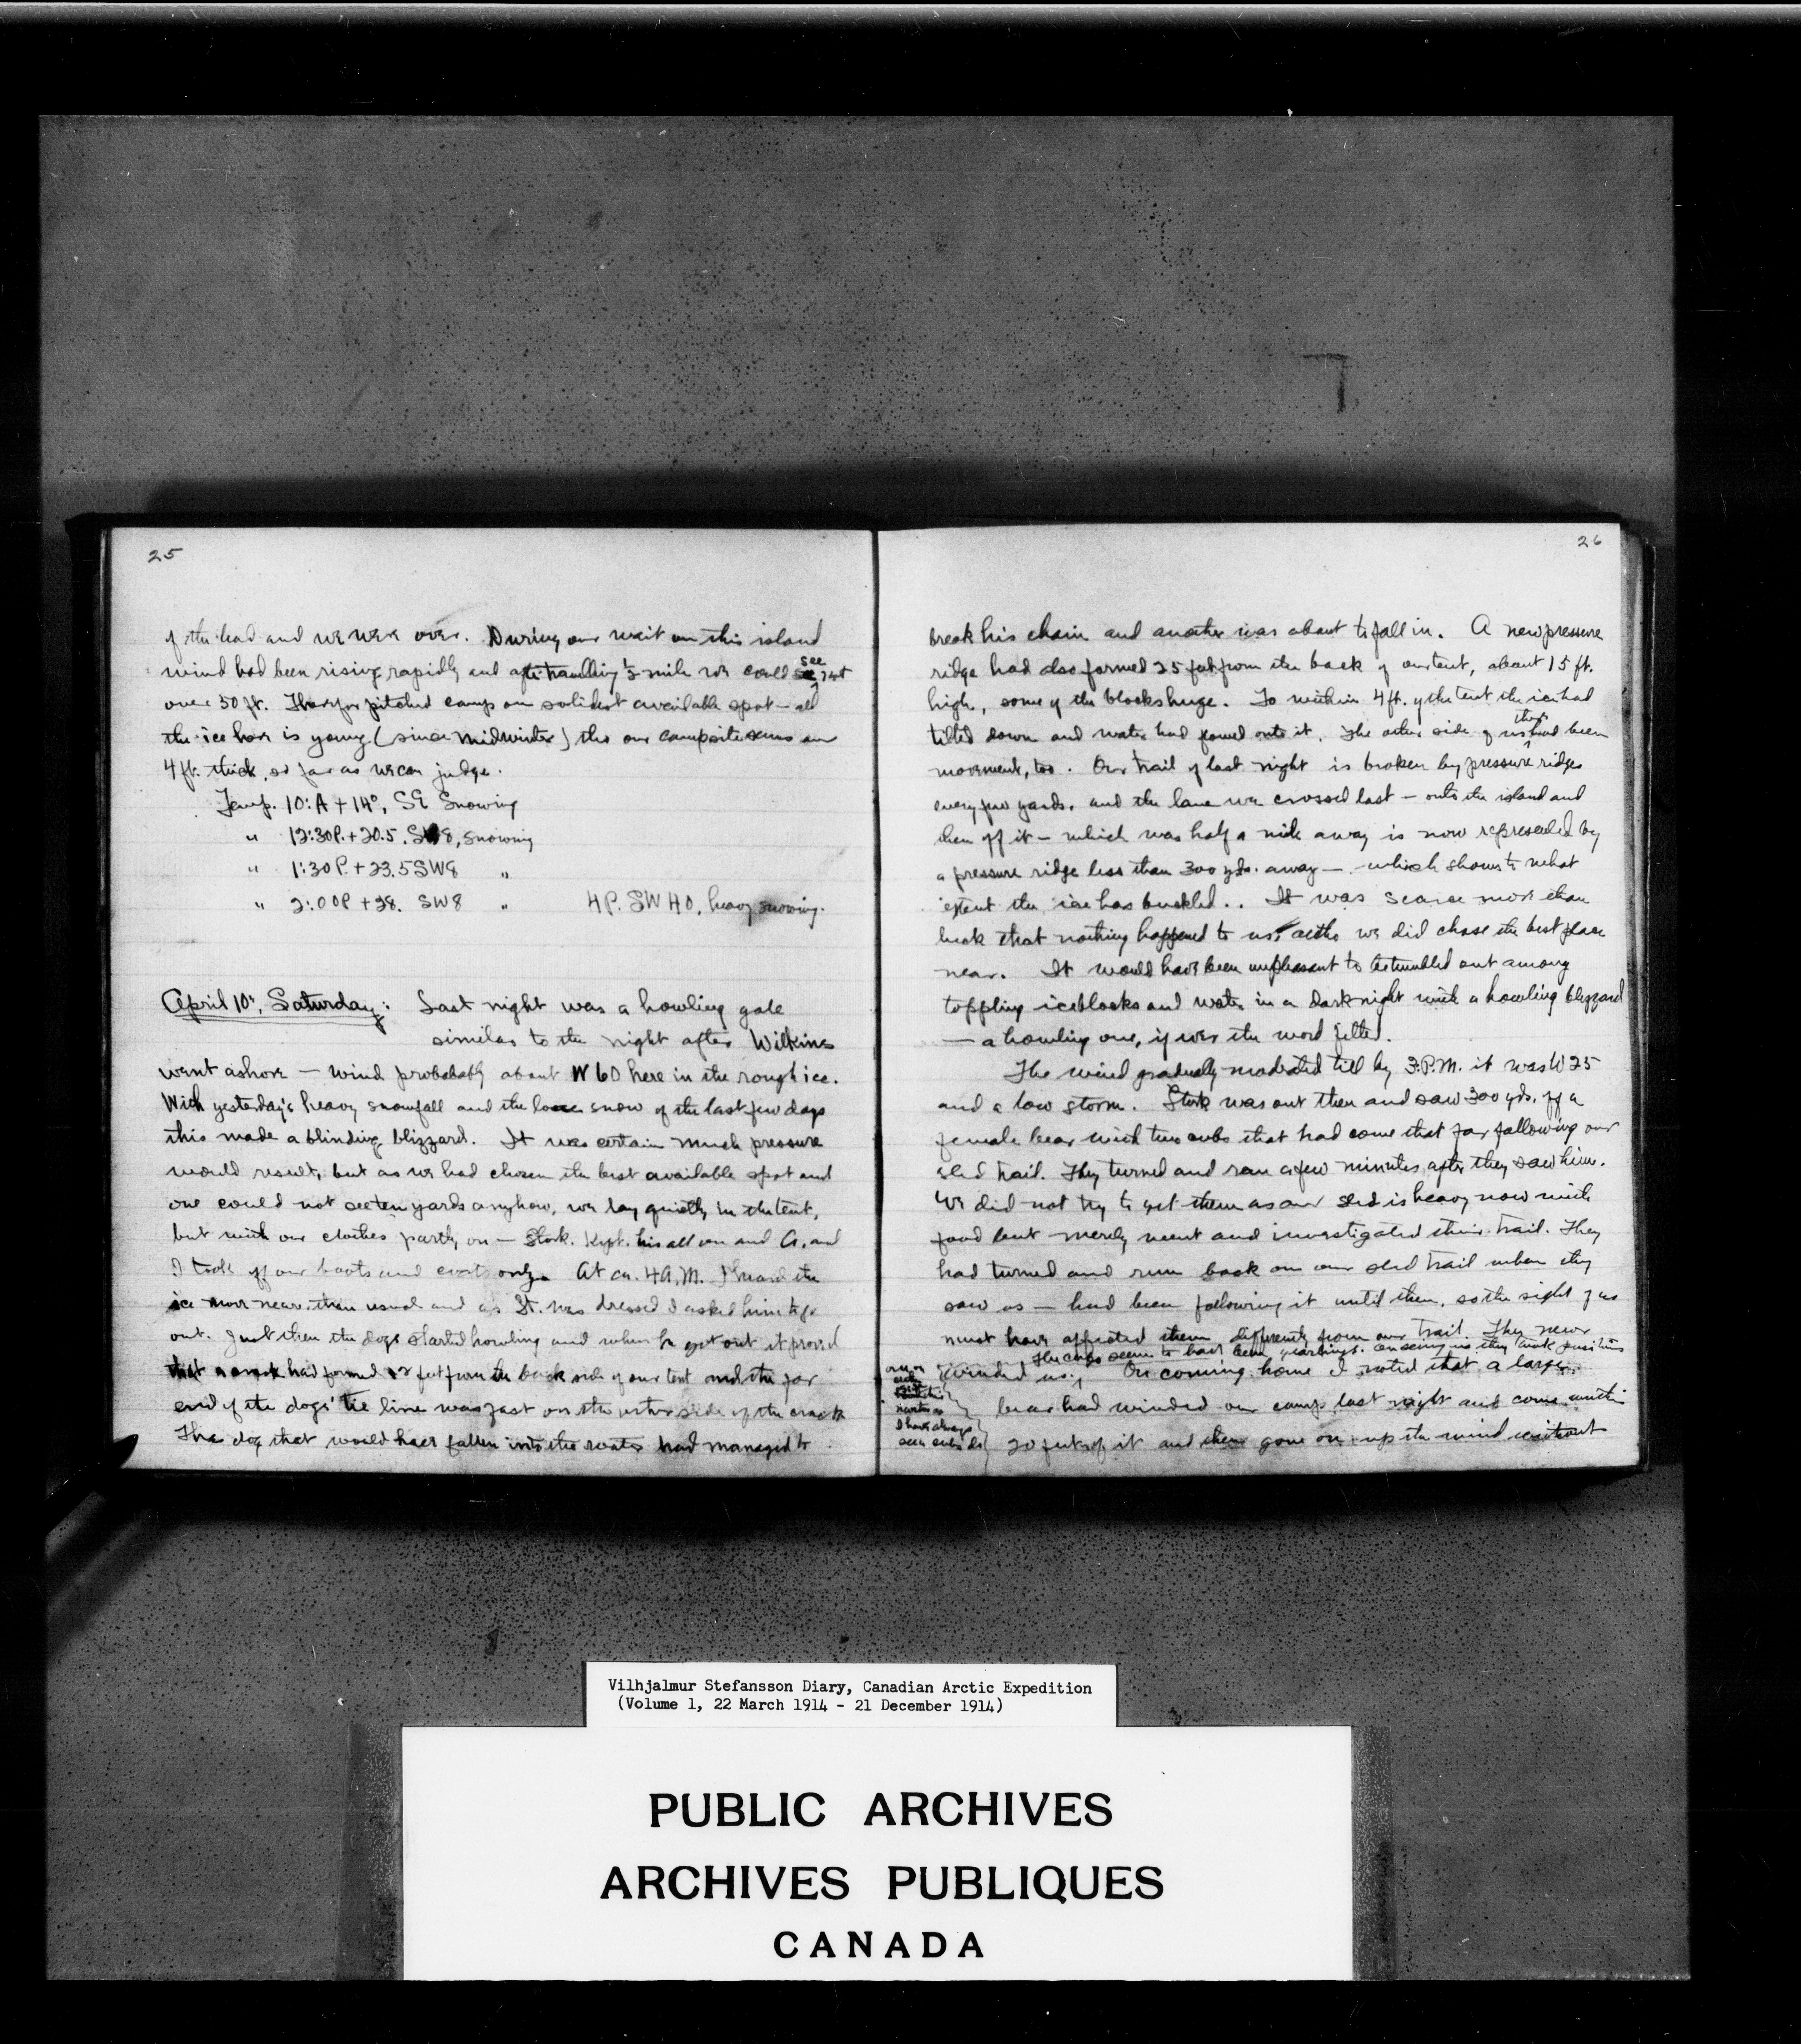 25
of the lead and we were over. During our wait on this island
wind had been rising rapidly and after travelling ½ mile we could see not
over 50 ft. Therefor pitched camp on solidest available spot — all
the ice here is young (since midwinter) tho our campsite seems on
4 ft. thick, so far as we can judge.
Temp. 10:A + 14°, SE Snowing
" 12:30P. + 20.5. SW8, snowing
" 1:30P. + 23.5 SW8 "
" 2:00P + 28. SW8 " 4P. SW 40, heavy snowing.
April 10", Saturday: Last night was a howling gale
similar to the night after Wilkins
went ashore — wind probabably about W 60 here in the rough ice.
With yesterday's heavy snowfall and the loose snow of the last few days
this made a blinding blizzard. It was certain much pressure
would result, but as we had chosen the best available spot and
one could not see ten yards anyhow, we lay quietly in the tent,
but with our clothes partly on — Stork. kept his all on and A. and
I took off our boots and coats only. At ca. 4 A.M. I heard the
ice move nearer than usual and as St. was dressed I asked him to go
out. Just then the dogs started howling and when he got out it proved
that a crack had formed 12 feet from the back side of our tent and the far
end of the dogs' tie line was fast on the other side of the crack
The dog that would have fallen into the water had managed to
26
break his chain and another was about to fall in. A new pressure
ridge had also formed 25 feet from the back of our tent, about 15 ft.
high, some of the blocks huge. To within 4 ft. of the tent the ice had
tilted down and water had flowed onto it. The other side of us there had been
movement, too. Our trail of last night is broken by pressure ridges
every few yards, and the lane we crossed last — onto the island and
then off it — which was half a mile away is now represented by
a pressure ridge less than 300 yds. away — which shows to what
extent the ice has buckled. It was scarce more than
luck that nothing happened to us, altho we did chose the best place
near. It would have been unpleasant to be tumbled out among
toppling iceblocks and water in a dark night with a howling blizzard
— a howling one, if ever the word fitted.
The wind gradually moderated till by 3.P.M. it was W 25
and a low storm. Stork was out then and saw 300 yds. off a
female bear with two cubs that had come that far following our
sled trail. They turned and ran a few minutes after they saw him.
We did not try to get them as our sled is heavy now with
food but merely went and investigated their trail. They
had turned and run back on our sled trail when they
saw us — had been following it until then, so the sight of us
must have affected them differently from our trail. They never
The cubs seem to have been yearlings. On seeing us they took positions
winded us. On coming home I noted that a large
one on each side
as I have always seen cubs do
bear had winded our camp last night and come within
20 feet of it and then gone on up the wind without
Vilhjalmur Stefansson Diary, Canadian Arctic Expedition
(Volume 1, 22 March 1914 - 21 December 1914)
PUBLIC ARCHIVES
ARCHIVES PUBLIQUES
CANADA